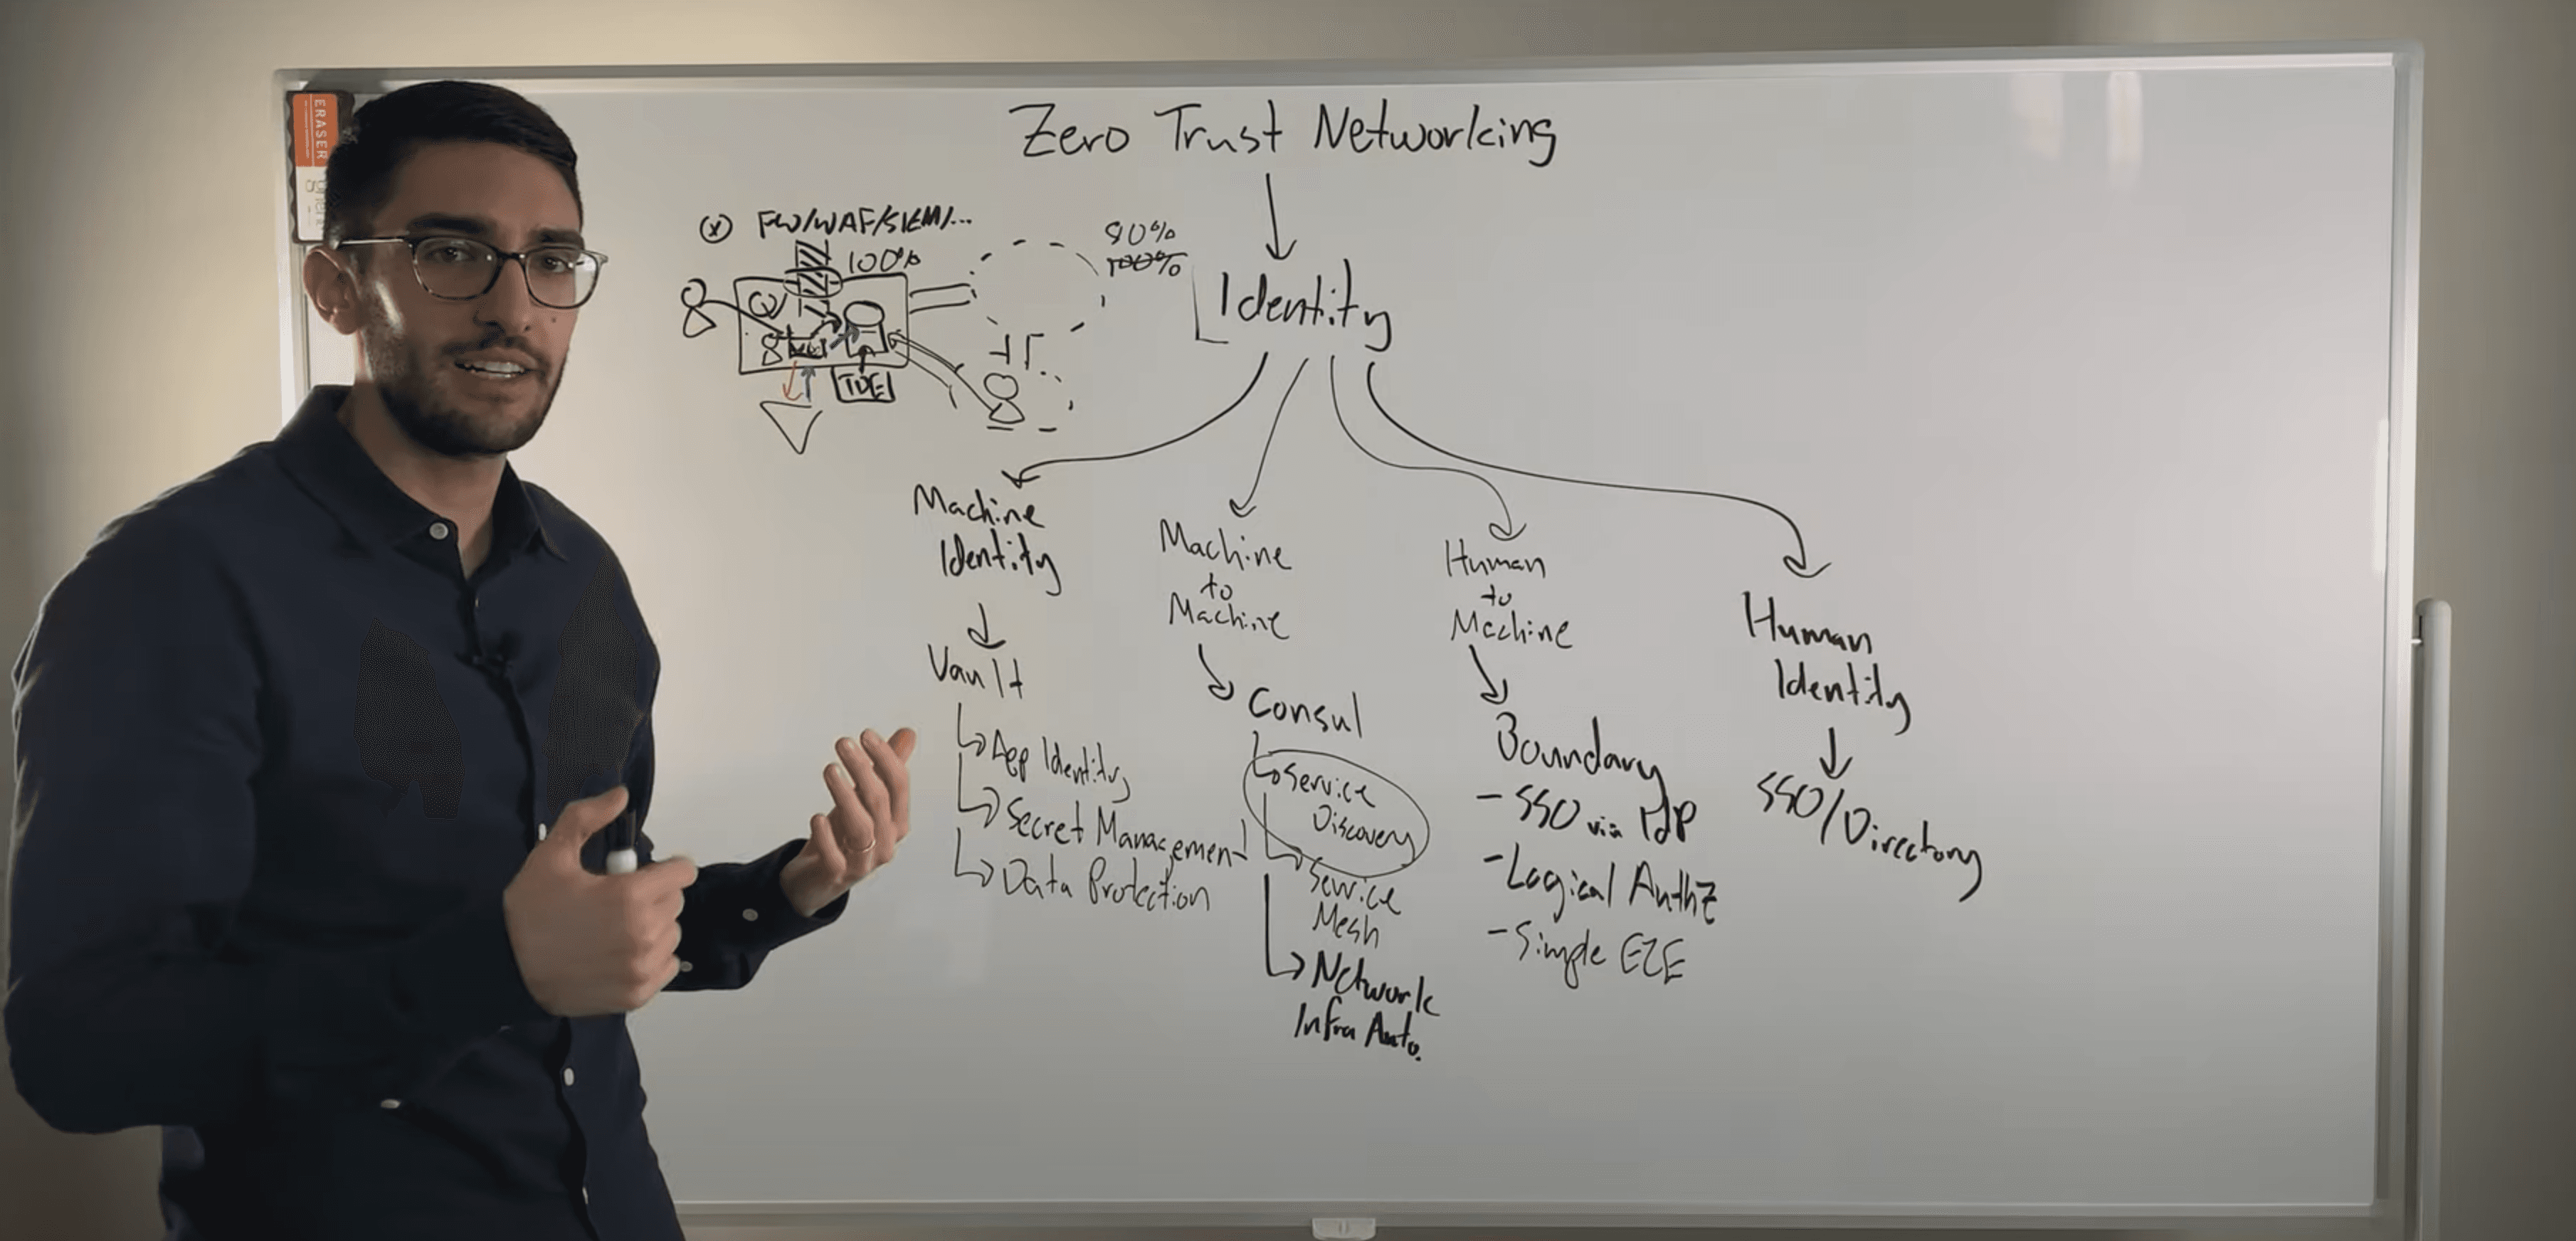 ERASER
Zero Trust Networking
FW/WAF/SIEM/...
100%
80%
100%
TDE
Identity
Machine
Identity
Vault
App Identity
Secret Management
Data Protection
Machine
to
Machine
Consul
Service
Discovery
Service
Mesh
Network
Infra Auto.
Human
to
Machine
Boundary
- SSO via IdP
- Logical AuthZ
- Simple E2E
Human
Identity
SSO/Directory